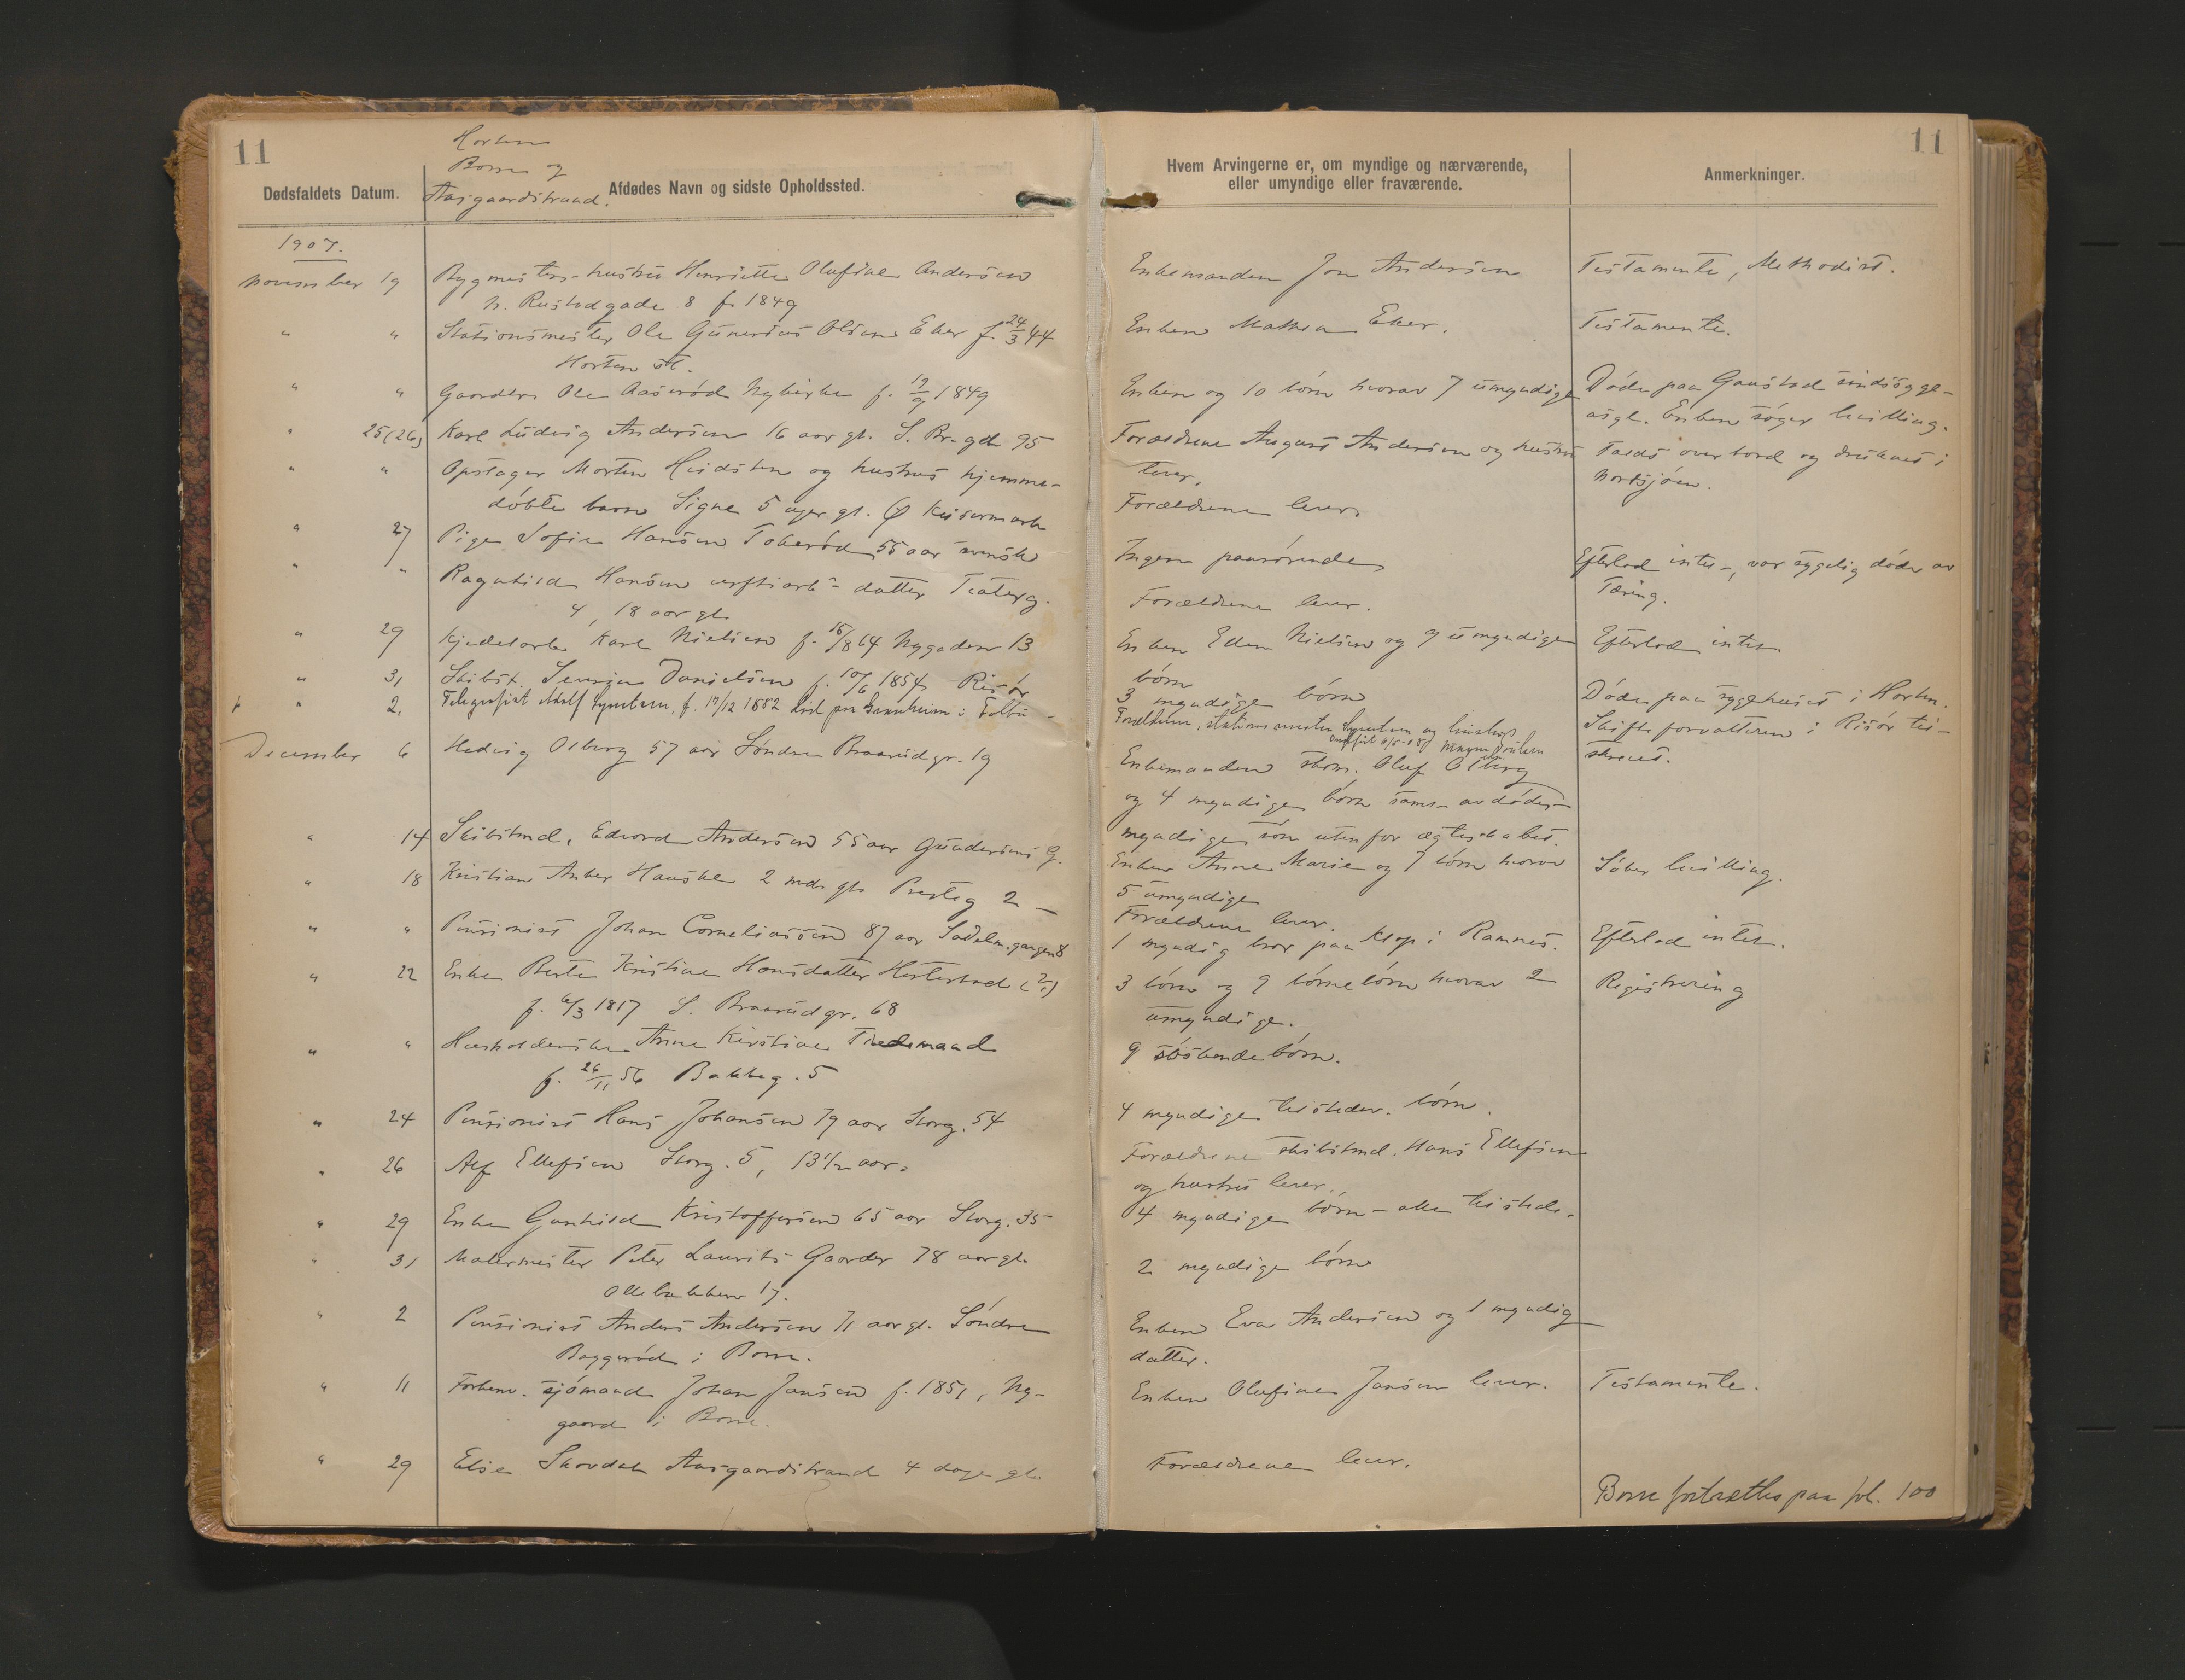 11
Horten
Borre og
Aasgaardstrand.
Dødsfaldets Datum.
Afdødes Navn og sidste Opholdssted.
1907.
November 19 Bygmesters hustru Henriette Olufine Andersen
N. Rustadgade 8 f. 1849
" " Stationsmester Ole Gunerius Olsen Eker f 24/3 44
Horten st.
" " Gaardbr. Ole Aasrød Nykirke f. 19/9 1849
" 25(26) Karl Ludvig Andersen 16 aar gl. S. Br.-gd. 95
" " Opsager Morten Heidsten og hustrus hjemme-
døbte barn Signe 5 uger gl. Keisermark
" 27 Pige Sofie Hansen Tokerød 55 aar svensk
" " Ragnhild Hansen verftsarb- datter Teaterg.
4, 18 aar gl.
" 29 Kjedelarb. Karl Nielsen f. 15/8 64 Nygaden 13
" 31 Skibst. Severin Danielsen f. 10/6 1854 Risør
" 2. Telegrafist Adolf f. 17/12 1882 paa
December 6 Hedvig Osberg 57 aar Søndre Braarudgr. 19
" 14 Skibstmd. Edvard Andersen 55 aar Gundersens G.
" 18 Kristian Anker Hauske 2 mdr gl. Presteg 2
" " Pensionist Johan Corneliussen 87 aar Sadelm.gangen 8
" 22 Enke Berte Kristine Hansdatter Hesterstad (?)
f. 6/3 1817 S. Braarudgr. 68
" " Husholderske Anne Kirstine Tiedemand
f. 26/11 56 Bakkeg. 5
" 24 Pensionist Hans Johansen 79 aar Storg. 54
" 26 Alf Ellefsen Storg. 5, 13 1/2 aar.
" 29 Enke Gunhild Kristoffersen 65 aar Storg. 35
" 31 Malermester Peter Laurits Gaarder 78 aar gl.
Ollebakken 17.
" 2 Pensionist Anders Andersen 71 aar gl. Søndre
Baggerød i Borre.
" 11 Forhenv. sjømand Johan Jansen f. 1851, Ny-
gaard i Borre.
" 29 Else Skovdal Aasgaardstrand 4 dage gl.
11
Hvem Arvingerne er, om myndige og nærværende,
eller umyndige eller fraværende.
Anmerkninger.
Enkemanden Jon Andersen Testamente, Methodist.
Enken Mathea Eker. Testamente.
Enken og 10 børn hvorav 7 umyndige Døde paa Gaustad sindssyge-
asyl. Enken søger bevilling.
Forældrene August Andersen og hustru Faldt over bord og druknet i
lever. Nordsjøen.
Forældrene lever.
Ingen paarørende Efterlod intet, var sygelig døde av
Tæring.
Forældrene lever.
Enken Ellen Nielsen og 9 umyndige Efterlod intet
børn
3 myndige børn Døde paa sygehuset i Horten.
Skifteforvalteren i Risør til-
skrevet.
Forældrene, stationsmester og hustru
Enkemanden skom. Oluf Osberg
og 4 myndige børn samt avdødes
myndige søn uten for ægteskabet.
Enken Anne Marie og 7 børn hvorav Søker bevilling.
5 umyndige
Forældrene lever.
1 myndig bror paa Klop i Ramnes. Efterlod intet.
3 børn og 9 børnebørn hvorav 2 Registrering
umyndige.
9 søskendebørn.
4 myndige tilstedev. børn.
Forældrene skibstmd. Hans Ellefsen
og hustru lever.
4 myndige børn - alle tilstede.
2 myndige børn
Enken Eva Andersen og 1 myndig
datter.
Enken Olufine Jansen lever. Testamente.
Forældrene lever.
Borre fortsættes paa fol. 100